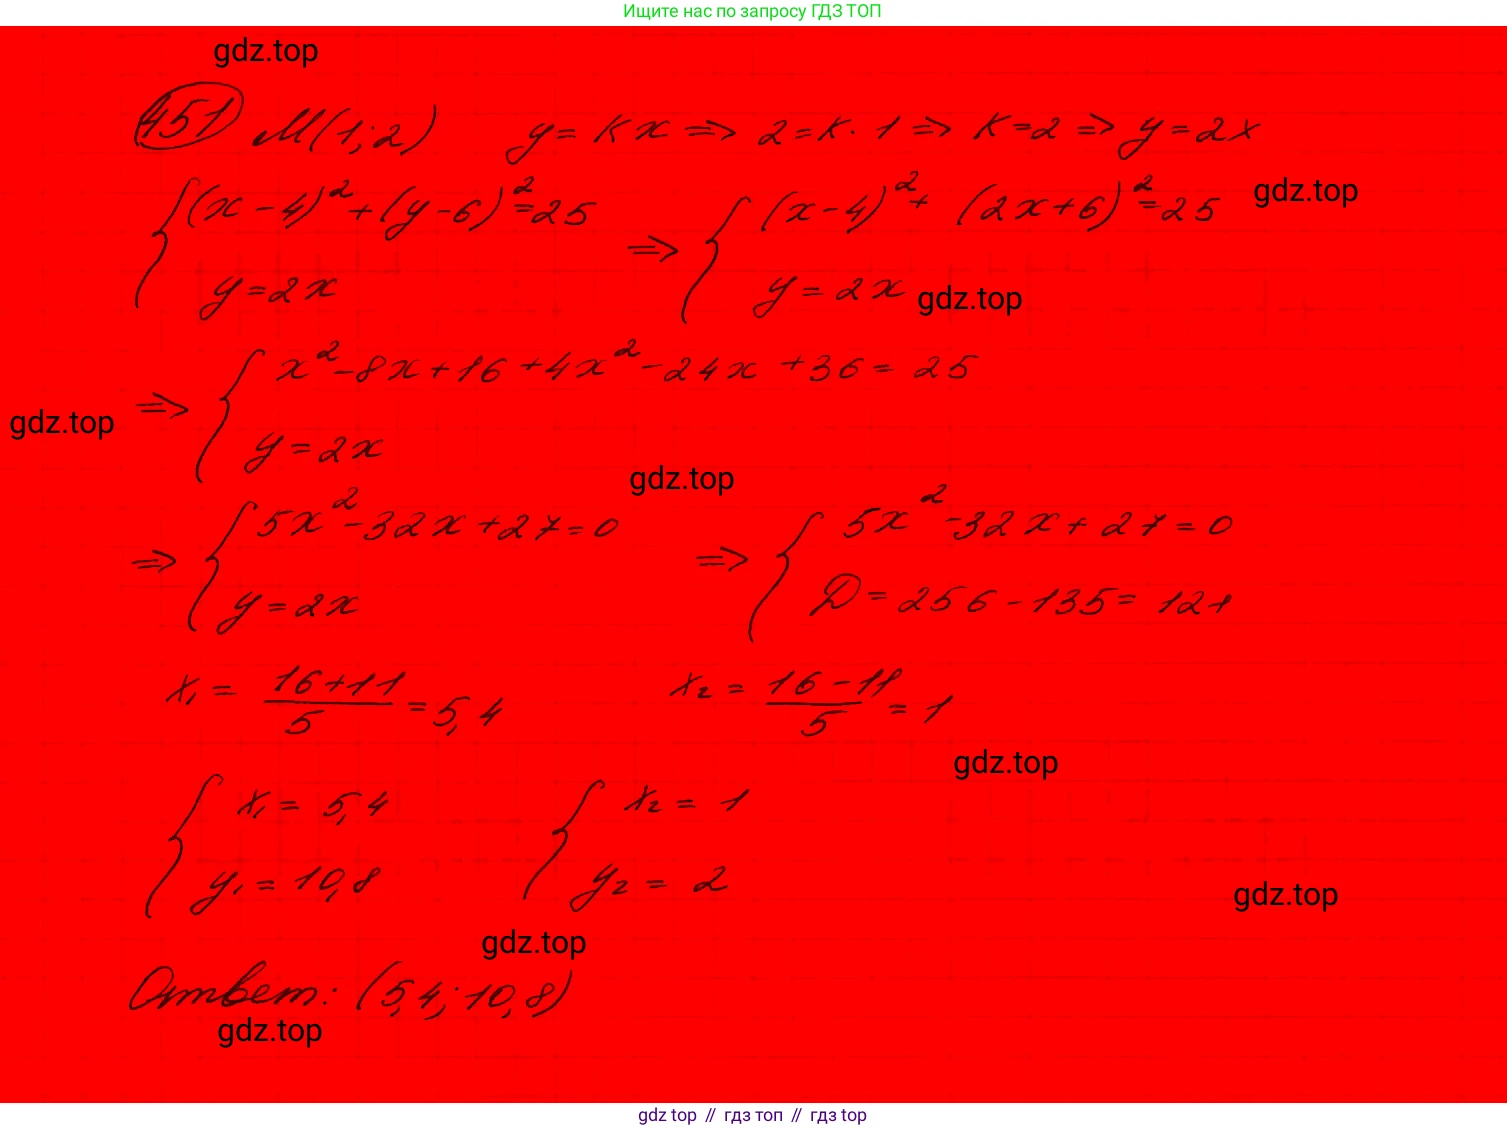 Ищите нас по запросу ГДЗ ТОП
gdz.top
451 М(1; 2) y = kx => 2 = k · 1 => k = 2 => y = 2x
{ (x - 4)² + (y - 6)² = 25 => { (x - 4)² + (2x + 6)² = 25
gdz.top
y = 2x y = 2x
gdz.top
=> { x² - 8x + 16 + 4x² - 24x + 36 = 25
gdz.top
y = 2x
gdz.top
=> { 5x² - 32x + 27 = 0 => { 5x² - 32x + 27 = 0
y = 2x Д = 256 - 135 = 121
x₁ = (16 + 11)/5 = 5,4 x₂ = (16 - 11)/5 = 1
gdz.top
{ x₁ = 5,4 { x₂ = 1
y₁ = 10,8 y₂ = 2
gdz.top
gdz.top
Ответ: (5,4; 10,8)
gdz.top
gdz top // гдз топ // гдз top